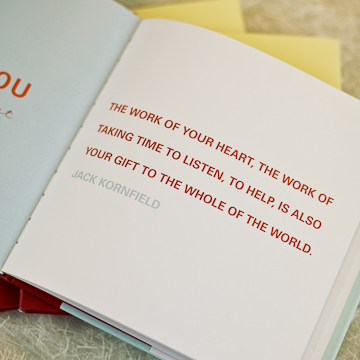 OU
THE WORK OF YOUR HEART, THE WORK OF
TAKING TIME TO LISTEN, TO HELP, IS ALSO
YOUR GIFT TO THE WHOLE OF THE WORLD.
JACK KORNFIELD